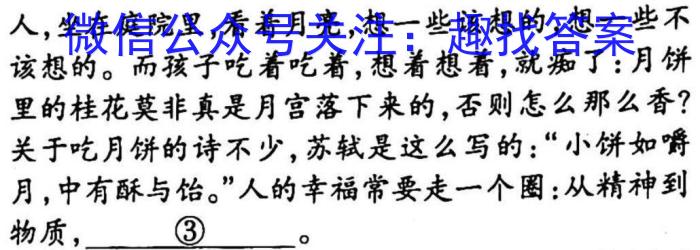 人,坐在庭院里,看着月亮,想一些该想的,想一些不
微信公众号关注：趣找答案
该想的。而孩子吃着吃着,想着想着,就痴了:月饼
里的桂花莫非真是月宫落下来的,否则怎么那么香?
关于吃月饼的诗不少,苏轼是这么写的:“小饼如嚼
月,中有酥与饴。”人的幸福常要走一个圈:从精神到
物质,③。